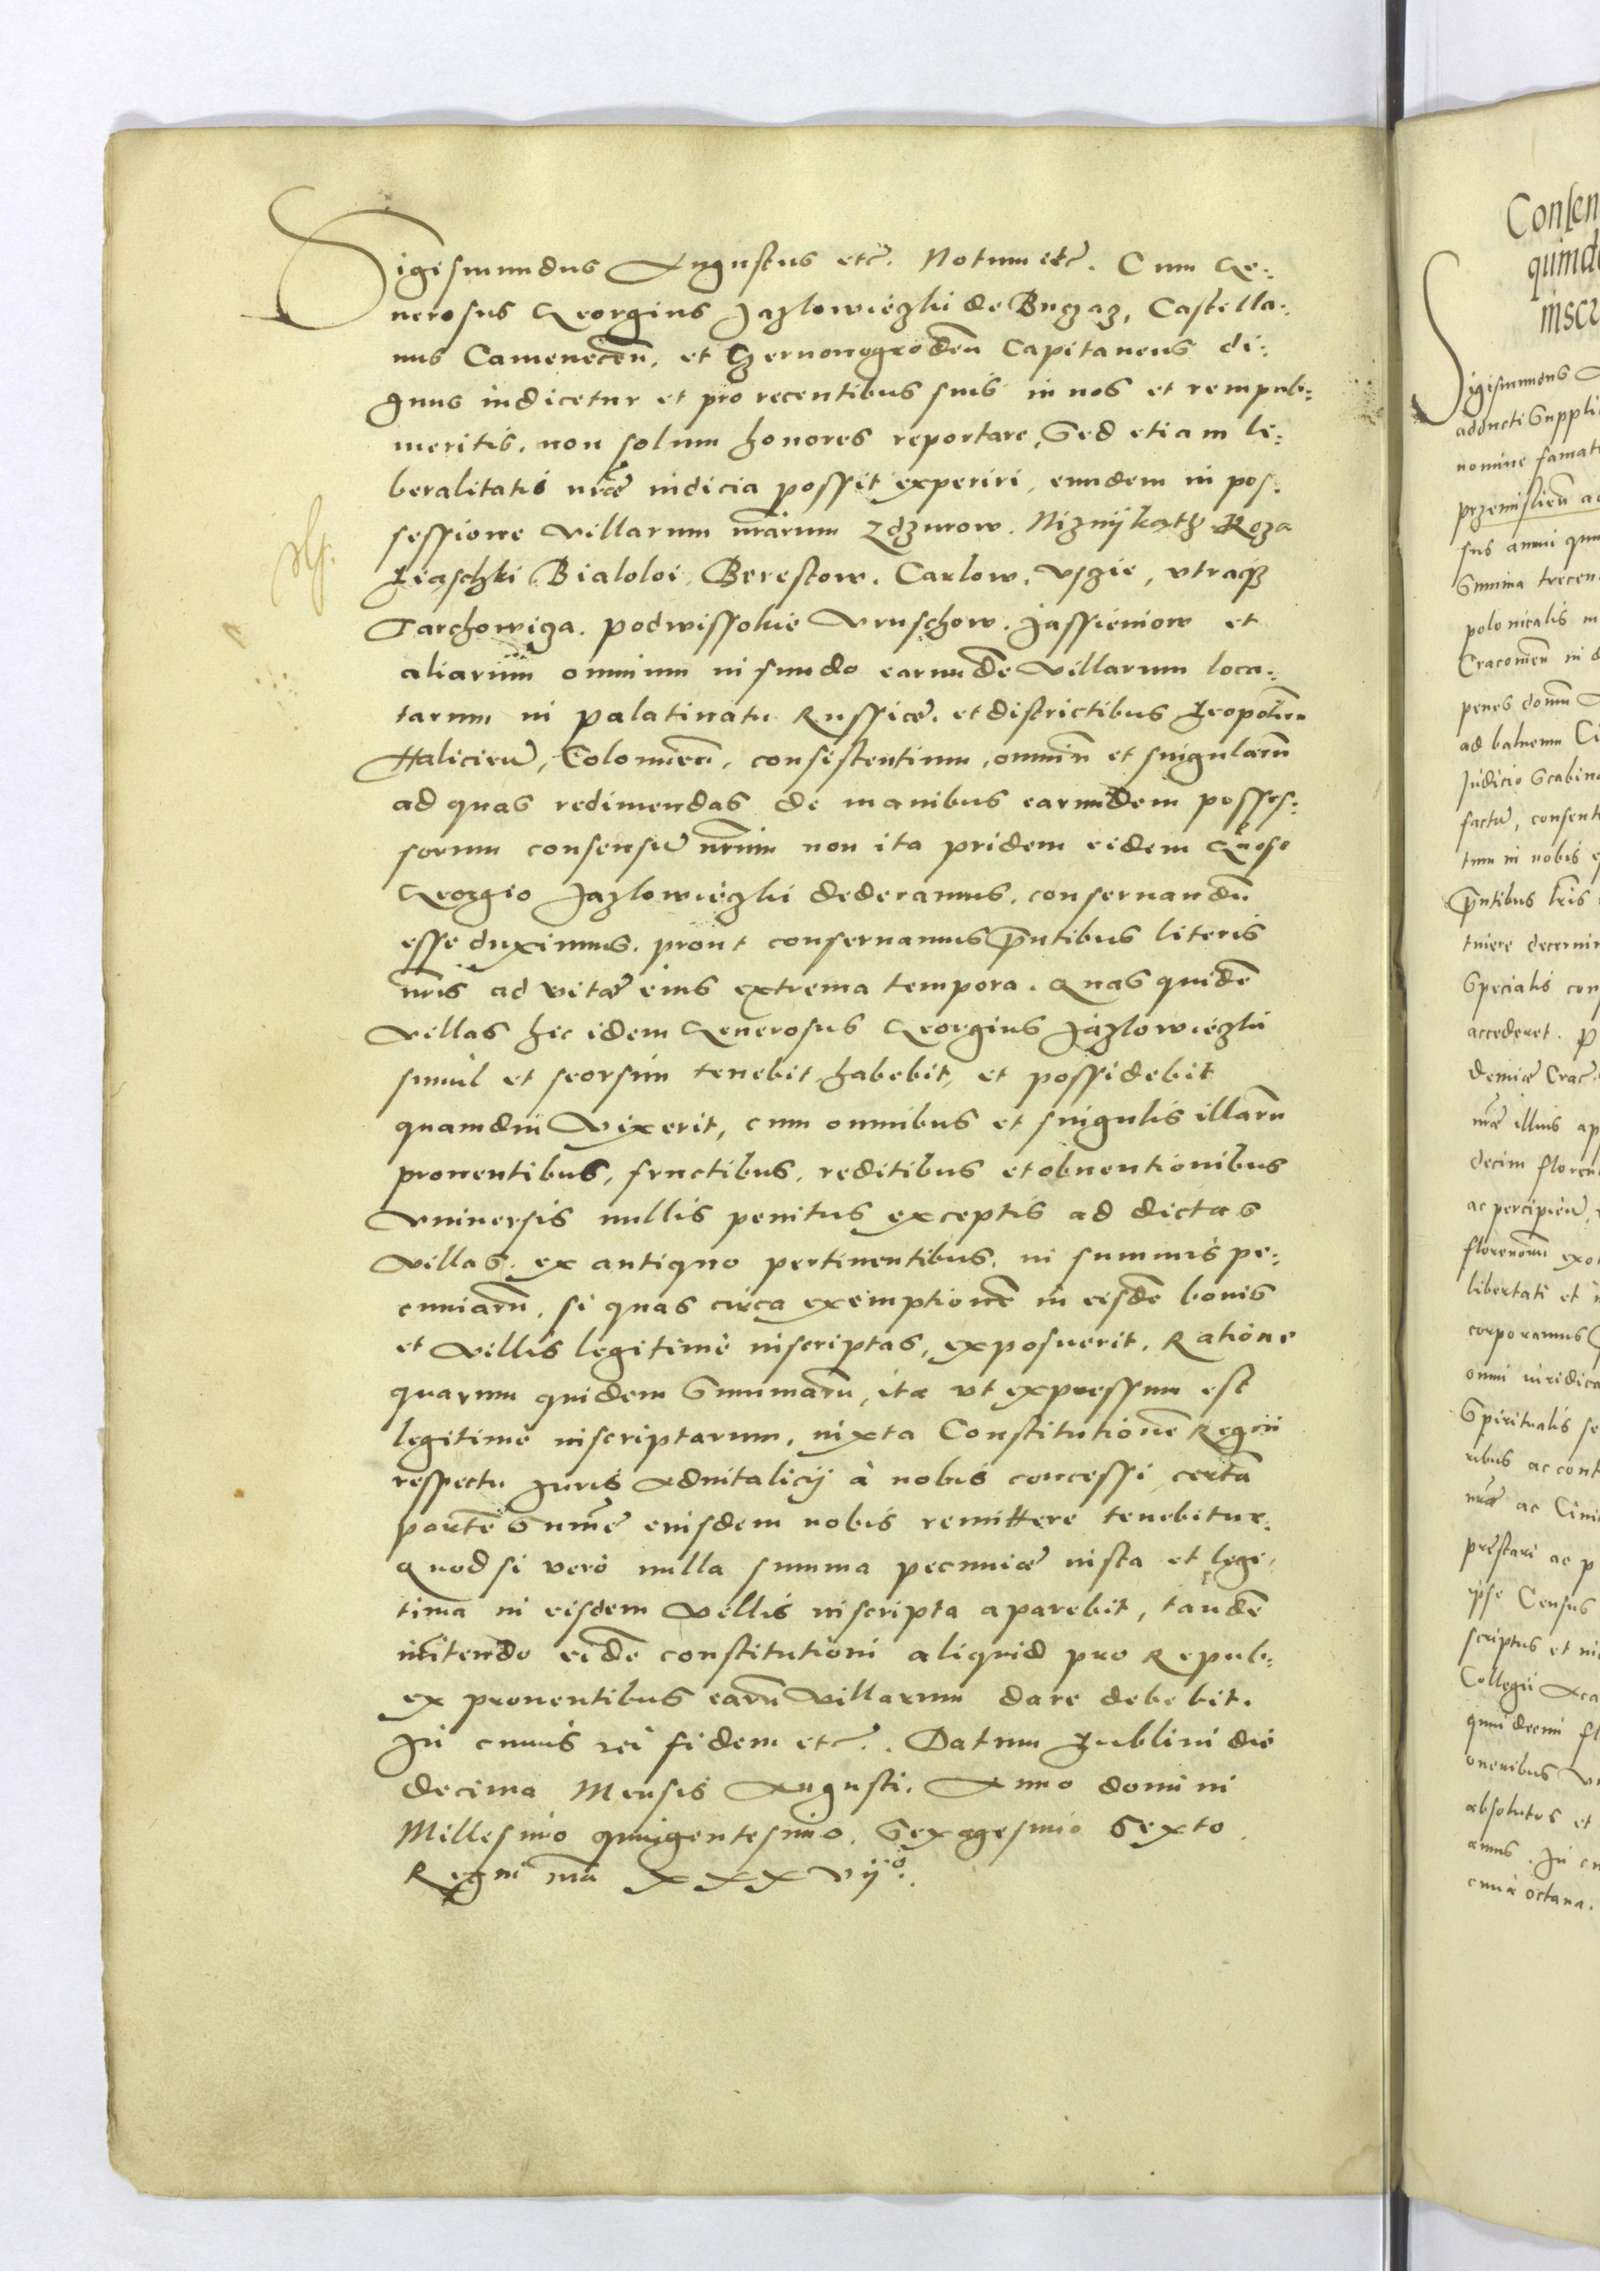 Sigismundus Augustus etc. Notum etc. Cum Ge-
nerosus Georgius Jazlowieczki de Buczacz, Castella-
nus Camenecen. et Czervonogroden Capitaneus di-
gnus iudicetur et pro recentibus suis in nos et rempub-
meritis, non solum honores reportare, Sed etiam li-
beralitatis nrae indicia possit experiri, eundem in pos-
sessione Villarum nrarum Zdzurow. Niznij
Bialoloi, Berestow. Carlow. Vsczie, vtraqz
Tarchowicza. podwissokie Vruschow. Jassieniow et
aliarum omnium in fundo earundem Villarum loca-
tarum in palatinatu Russiae. et districtibus Leopolien
Halicien, Colomien. consistentium, omnium et singularum
ad quas redimendas de manibus earundem posses-
sorum consensum nrum non ita pridem eidem Gnoso
Georgio Jazlowieczki dederamus. conservandum
esse duximus. prout conservamus pntibus literis
nris ad vitae eius extrema tempora. Quas quidem
Villas hic idem Generosus Georgius Jazlowieczki
simul et seorsim tenebit, habebit, et possidebit
quamdiu Vixerit, cum omnibus et singulis illarum
proventibus, fructibus. reditibus et obventionibus
Vniversis nullis penitus exceptis ad dictas
Villas. ex antiquo pertinentibus. in summis pe-
cuniarum, si quas circa exemptionem in eisdem bonis
et Villis legitime inscriptas, exposuerit. Ratione
quarum quidem Summarum, ita vt expressum est
legitime inscriptarum, iuxta Constitutionem Regni
respectu Juris Advitalicij à nobis concessi certam
partem Summae eiusdem nobis remittere tenebitur.
Quod si vero nulla summa pecuniae iusta et legi-
tima in eisdem Villis inscripta aparebit, tandem
eidem constitutioni aliquid pro Repub-
ex proventibus earum Villarum dare debebit.
In cuius rei fidem etc. Datum Lublini die
decima Mensis Augusti. Anno domini
Millesimo quingentesimo. Sexagesimo Sexto.
Regni nri XXXVIJ°.
Consen
quinde
inscr
Sigismundus A
adducti Suppli
nomine famat
przemislien ac
Summa trecen
polonicalis in
Cracovien in d
penes domum
ad balneum Ci
Judicio Scabin
factum, consent
tum in nobis e
pntibus lris
decernim
Specialis con
accederet. P
demiae Crac.
nrae illius ap
decim floren
ac percipien,
florenorum exo
libertati et
corporamus
omni iuridica
Spiritualis se
nrae ac Civi
prestari ac p
ipse Census
scriptus et
Collegii Aca
quindecim fl
oneribus
absolutos et
amus. In cu
octava.